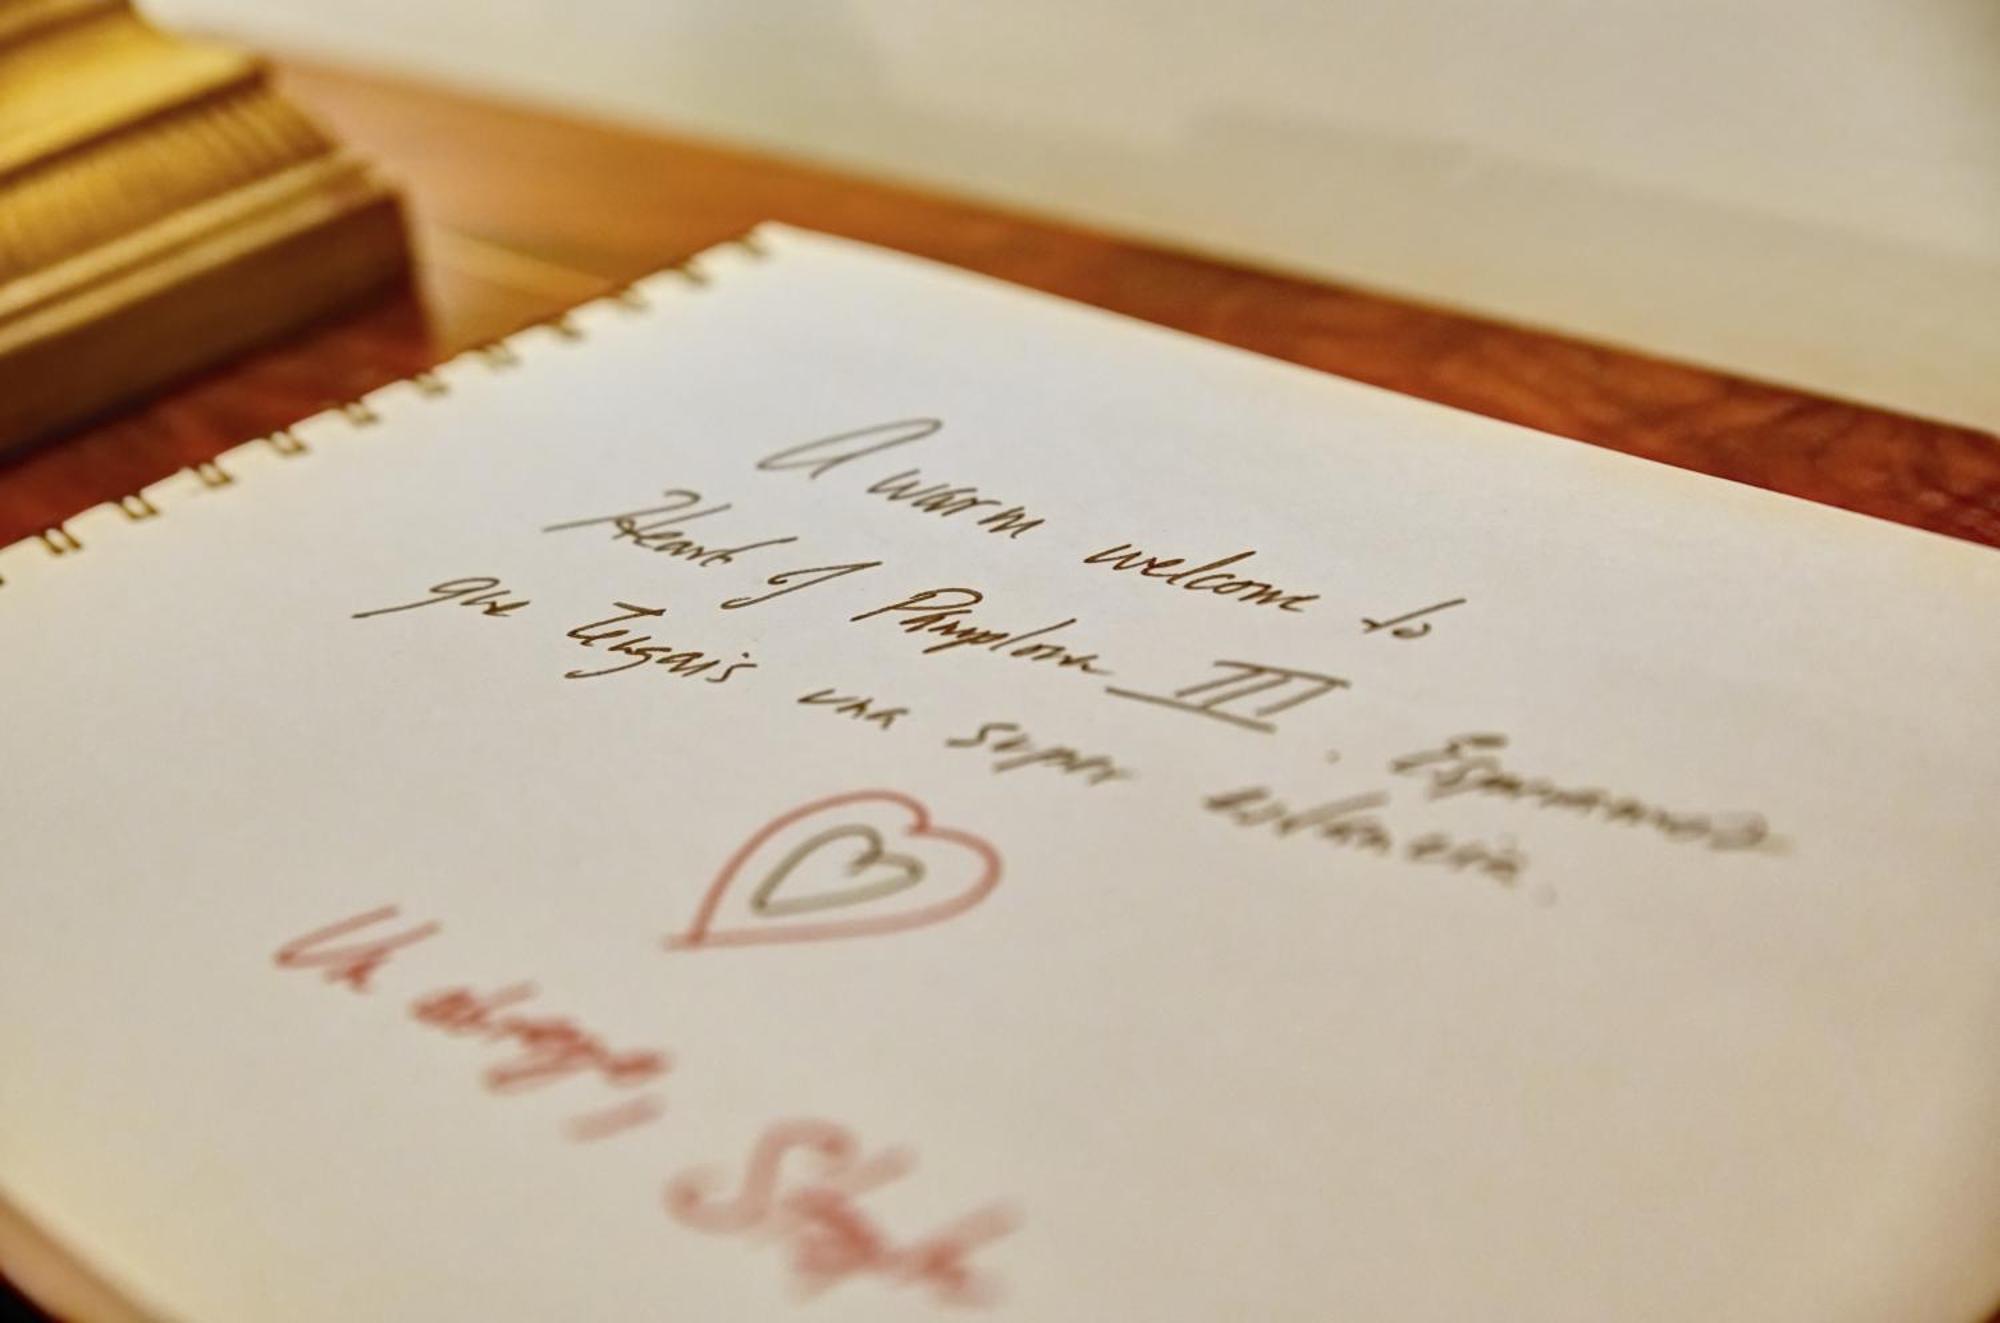 A warm welcome to
Heart of Pamplona III. Esperamos
que tengais una super estancia.
Un abrazo,